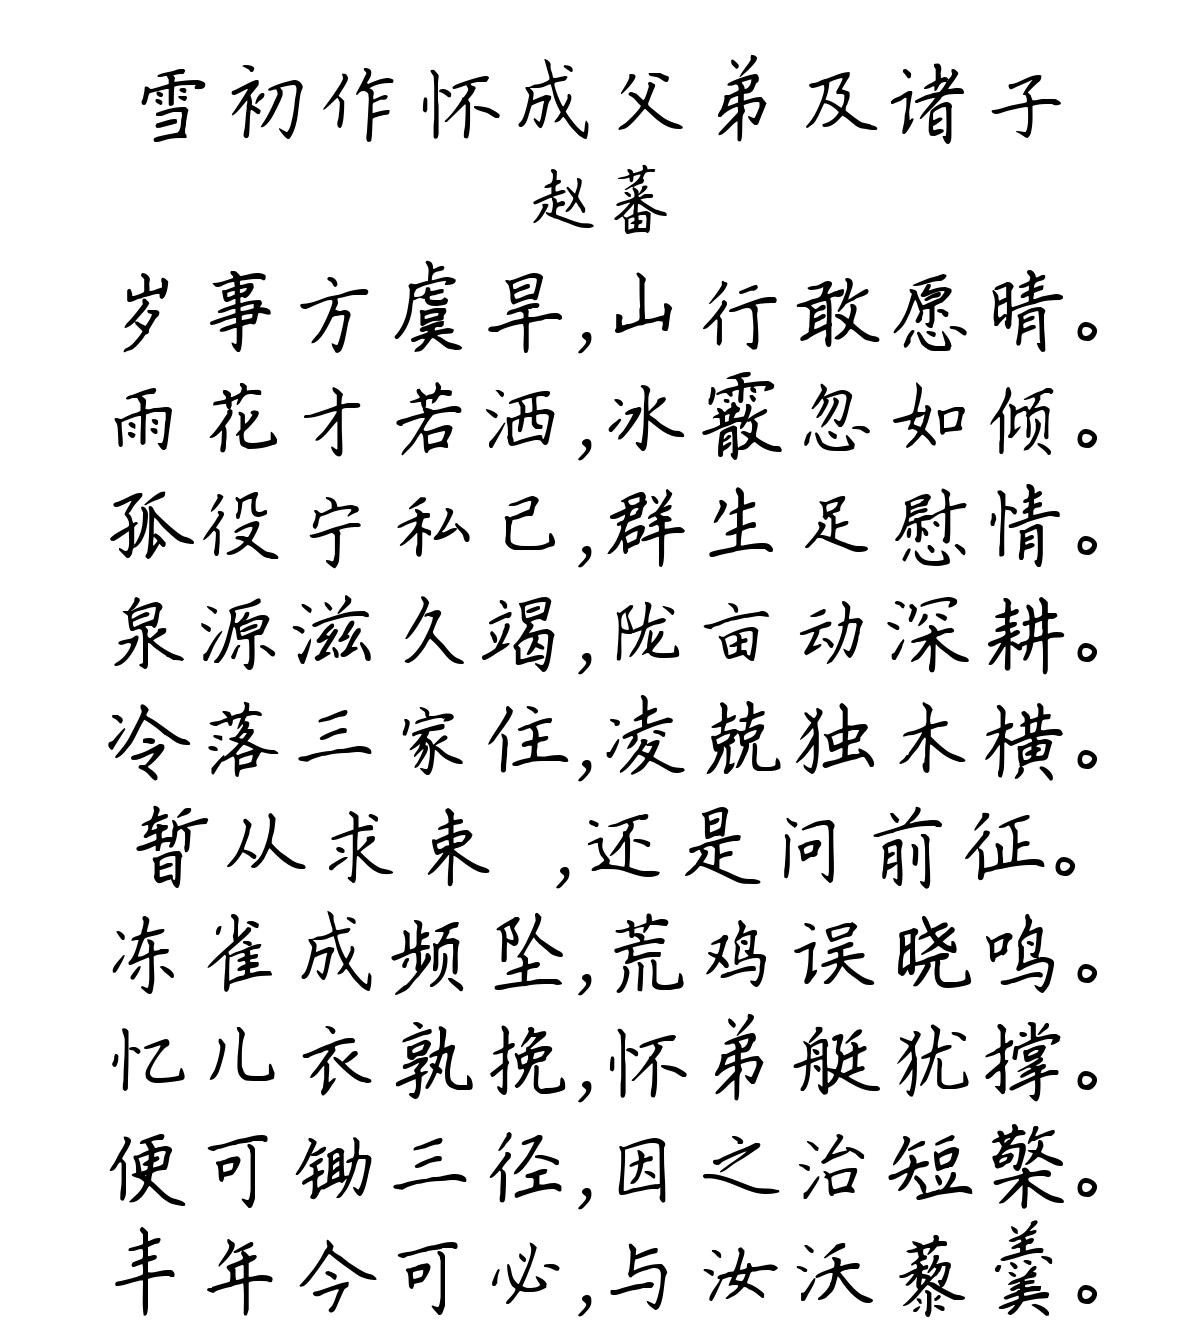 雪初作怀成父弟及诸子
赵蕃
岁事方虞旱,山行敢愿晴。
雨花才若洒,冰霰忽如倾。
孤役宁私己,群生足慰情。
泉源滋久竭,陇亩动深耕。
冷落三家住,凌兢独木横。
暂从求束 ,还是问前征。
冻雀成频坠,荒鸡误晓鸣。
忆儿衣孰挽,怀弟艇犹撑。
便可锄三径,因之治短檠。
丰年今可必,与汝沃藜羹。